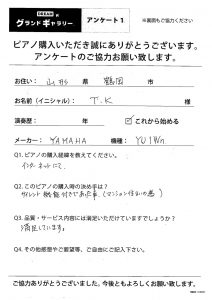 グランドギャラリー アンケート1 ※裏面もご協力ください
ピアノ購入いただき誠にありがとうございます。
アンケートのご協力お願い致します。
お住い: 山形 県 鶴岡 市
お名前(イニシャル): T.K 様
演奏歴: 年 ☑ これから始める
メーカー: YAMAHA 機種: YU1Wn
Q1. ピアノの購入経緯を教えてください。
インターネットにて
Q2. このピアノの購入時の決め手は?
サイレント機能付きであった事。(マンション住いの為)
Q3. 品質・サービス内容には満足いただけていますでしょうか?
満足しています。
Q4. その他感想やご要望等、ご自由にご記入下さい。
ご協力ありがとうございました。今後ともよろしくお願い致します。